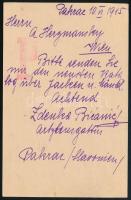 Pakrac 10/II 1915
Herrn
A Herzmansky
Wien
Bitte senden Sie
mir den neusten Kata
log über Jacken u.
Achtend
Zdenka
Pakrac (Slavonien)